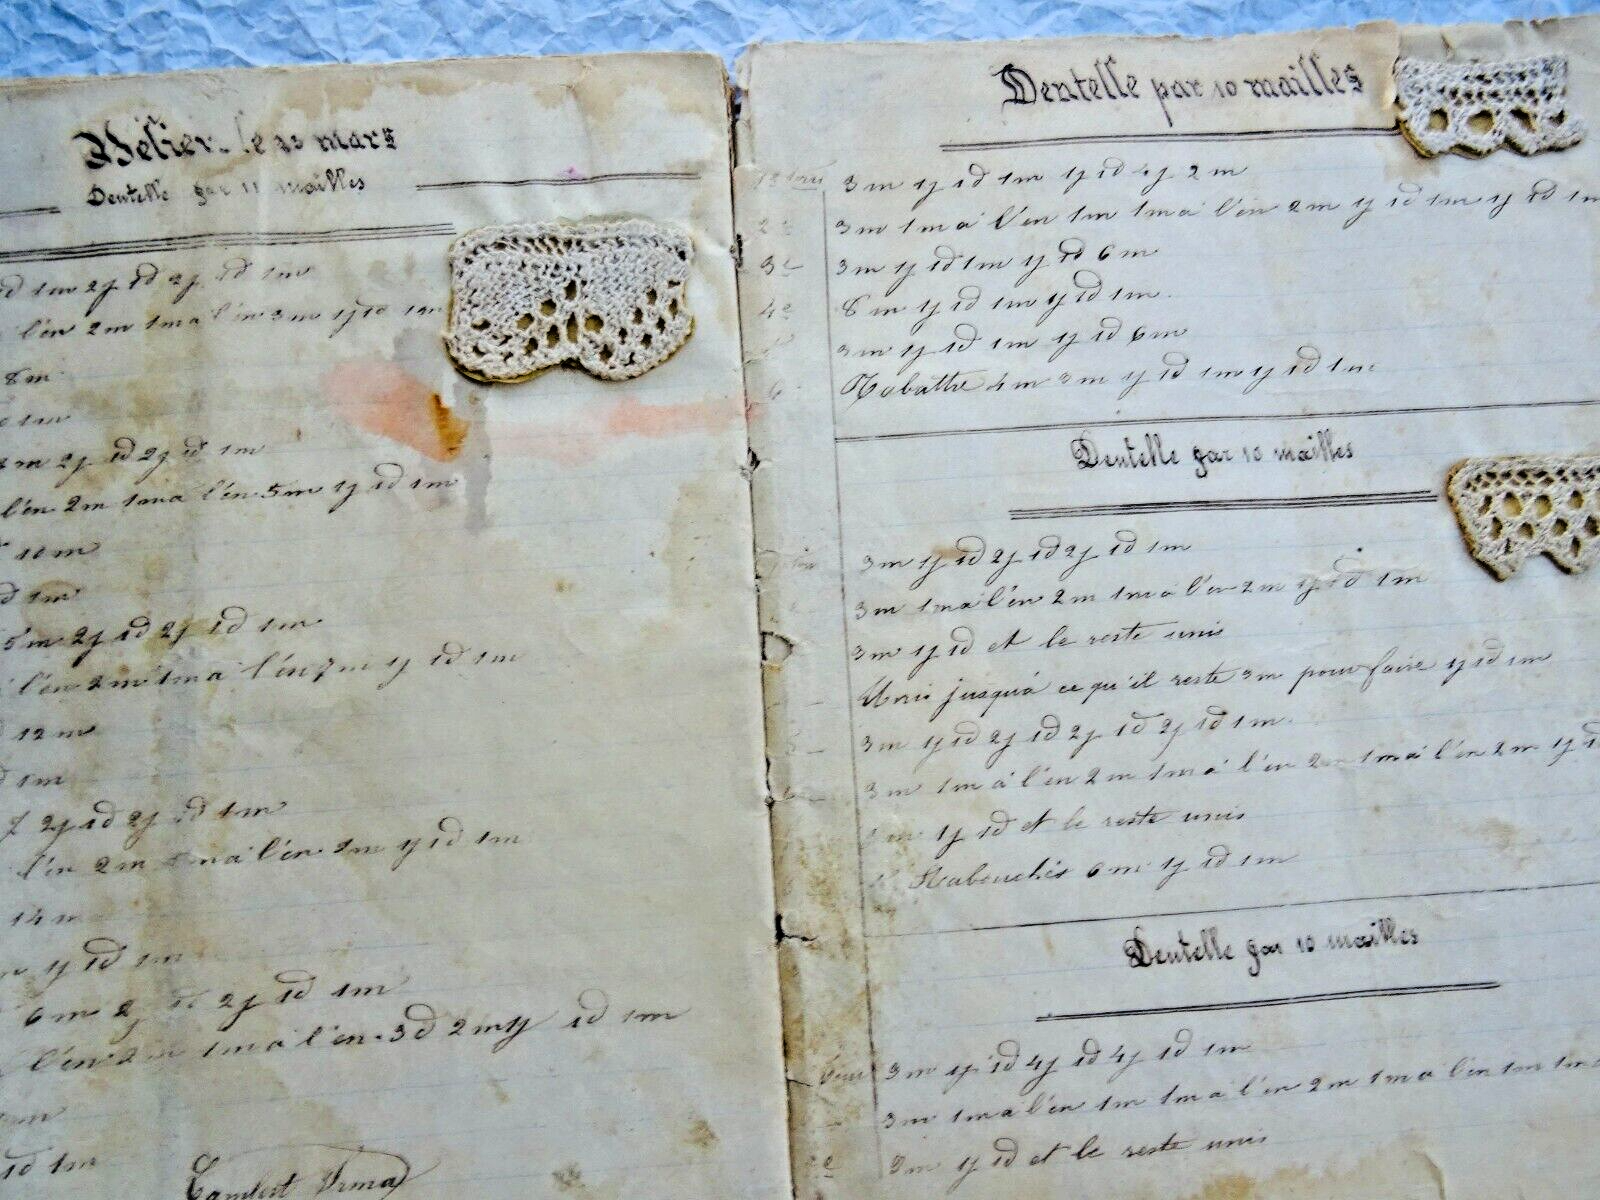 Vélier le 20 mars
Dentelle par 11 mailles
1d 1m 2j 1d 2j 1d 1m
l'en 2m 1m a l'en 3m 1j 1d 1m
8m
1m
2j 1d 2j 1d 1m
l'en 2m 1m a l'en 5m 1j 1d 1m
10m
d 1m
5m 2j 1d 2j 1d 1m
l'en 2m 1m a l'en 7m 1j 1d 1m
12m
d 1m
2j 1d 2j 1d 1m
l'en 2m 1m a l'en 1j 1d 1m
14m
1j 1d 1m
6m 2j 1d 2j 1d 1m
l'en 2m 1m a l'en 3d 2m 1j 1d 1m
1d 1m
Lambert Irma
Dentelle par 10 mailles
1er tour 3m 1j 1d 1m 1j 1d 4j 2m
2e 3m 1m a l'en 1m 1m a l'en 2m 1j 1d 1m 1j 1d 1m
3e 3m 1j 1d 1m 1j 1d 6m
4e 8m 1j 1d 1m 1j 1d 1m
3m 1j 1d 1m 1j 1d 6m
6 Rabattre 4m 3m 1j 1d 1m 1j 1d 1m
Dentelle par 10 mailles
3m 1j 1d 2j 1d 2j 1d 1m
3m 1m a l'en 2m 1m a l'en 2m 1j 1d 1m
3m 1j 1d et le reste unis
Unis jusqu'à ce qu'il reste 3m pour faire 1j 1d 1m
3m 1j 1d 2j 1d 2j 1d 2j 1d 1m
3m 1m a l'en 2m 1m a l'en 2m 1m a l'en 2m 1j 1d
1j 1d et le reste unis
Rabouches 6m 1j 1d 1m
Dentelle par 10 mailles
3m 1j 1d 4j 1d 4j 1d 1m
3m 1m a l'en 1m 1m a l'en 2m 1m a l'en 1m 1m
3m 1j 1d et le reste unis